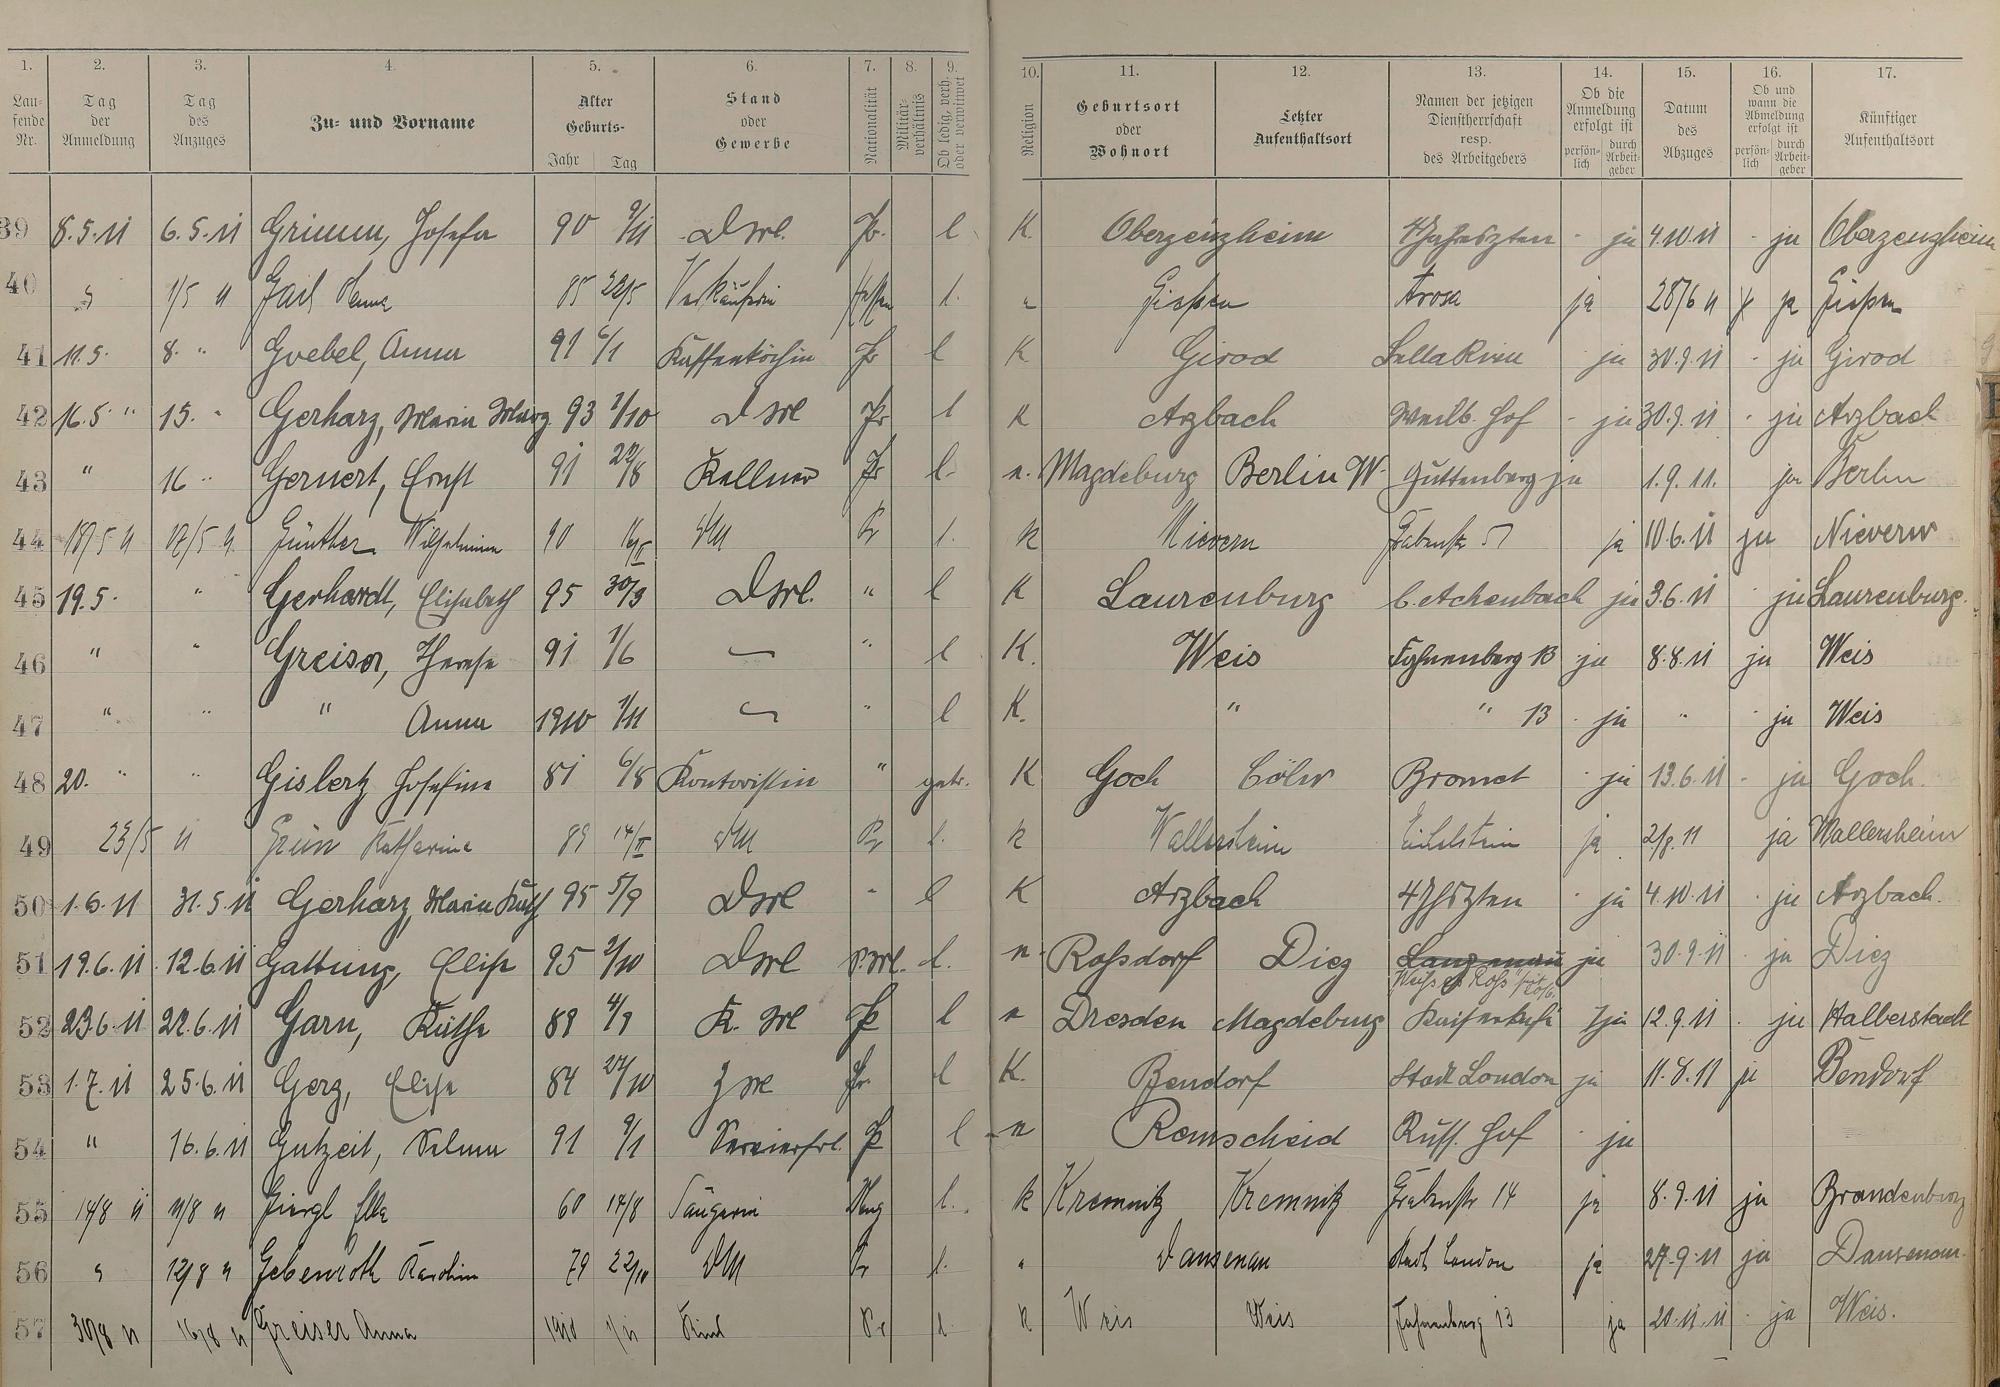 1. 2. 3. 4. 5. 6. 7. 8. 9. 10. 11. 12. 13. 14. 15. 16. 17.
Laufende Nr. Tag der Anmeldung Tag des Anzuges Zu- und Vorname Alter Geburts- Jahr Tag Stand oder Gewerbe Nationalität Militärverhältnis Ob ledig, verh. oder verwitwet Religion Geburtsort oder Wohnort Letzter Aufenthaltsort Namen der jetzigen Dienstherrschaft resp. des Arbeitgebers Ob die Anmeldung erfolgt ist persönlich durch Arbeitgeber Datum des Abzuges Ob und wann die Abmeldung erfolgt ist persönlich durch Arbeitgeber Künftiger Aufenthaltsort
39 8.5.11 6.5.11 Grimm, Josefa 90 9/11 Pr. l K. Oberzeuzheim ja 4.10.11 ja Oberzeuzheim
40 " 1/5 11 Gail 85 22/5 Verkäuferin Hessen l. " Gießen Arosa ja 28/6 11 ja Gießen
41 11.5. 8. " Goebel, Anna 91 6/1 Kaffeeköchin Pr l K Girod Bella Riva ja 30.9.11 - ja Girod
42 16.5. " 15. " Gerharz, Maria Marg 93 1/10 Dml Pr l K Arzbach Weilb. Hof - ja 30.9.11 - ja Arzbach
43 " 16 " Gernert, Ernst 91 22/8 Kellner Pr l. Magdeburg Berlin W. Guttenberg ja 1.9.11. ja Berlin
44 18/5 11 17/5 11 Günther Wilhelmine 90 Pr l. k Nievern ja 10.6.11 ja Nievern
45 19.5. " Gerhardt, Elisabeth 95 30/3 Dml. " l K Laurenburg b. Achenbach ja 3.6.11 ja Laurenburg.
46 " " Greiser, Therese 91 1/6 — " l K. Weis 13 ja 8.8.11 ja Weis
47 " " " Anna 1910 1/11 — " l K. " " 13 ja " ja Weis
48 20. " " Gislertz Josefine 81 6/8 Kontoristin " getr. K Goch Cöln Bromet ja 13.6.11 - ja Goch.
49 23/5 11 Grün Katharine 89 14/II Pr l. k Wallersheim ja 2/8.11 ja Wallersheim
50 1.6.11 31.5.11 Gerharz, Maria Kath 95 5/9 Dml " l K Arzbach ja 4.10.11 ja Arzbach.
51 19.6.11 12.6.11 Gattung, Elise 95 2/10 Dml l. Roßdorf Diez ja 30.9.11 ja Diez
Weiß Roß
52 23.6.11 22.6.11 Garn, Käthe 89 4/9 K. Ml Pr l Dresden Magdeburg ja 12.9.11 ja Halberstadt
53 1.7.11 25.6.11 Gerz, Elise 84 27/10 Pr. l K. Bendorf Stadt London ja 11.8.11 ja Bendorf
54 " 16.6.11 Gutzeit, Selma 91 9/1 Servierfrl. Pr l Remscheid Russ. Hof ja
55 14/8 11 11/8 11 Giergl Ella 60 14/8 Sängerin Ung l. k Kremnitz Kremnitz Grabenstr 14 ja 8.9.11 ja Brandenburg
56 " 12/8 11 Gebenroth Karolin 79 22/10 Pr l. " Dausenau Stadt London ja 27.9.11 ja Dausenau.
57 30/8 11 16/8 11 Greiser Anna 1910 1/11 Kind Pr l k Weis Weis 13 ja 20.11.11 ja Weis.